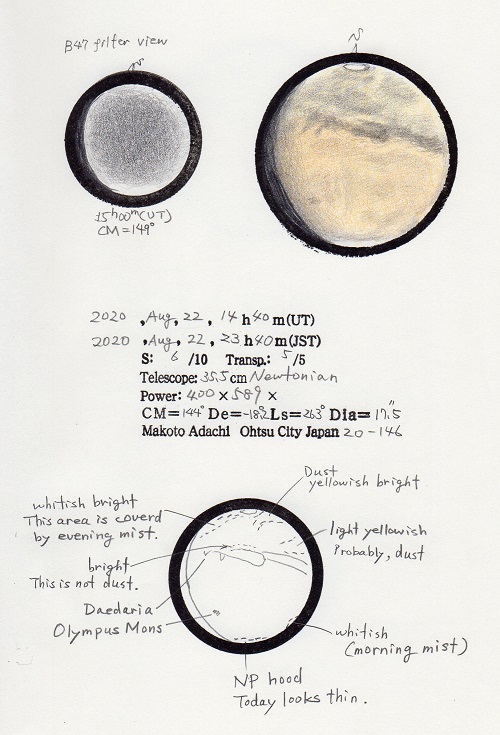 B47 filter view
N
N
15h00m(UT)
CM=149°
2020 , Aug, 22 , 14 h 40 m(UT)
2020 , Aug, 22 , 23 h 40 m(JST)
S: 6 /10 Transp.: 5 /5
Telescope: 35.5 cm Newtonian
Power: 400 × 589 ×
CM= 144° De= -18.2° Ls= 263° Dia= 17.5"
Makoto Adachi Ohtsu City Japan 20-146
Dust
yellowish bright
whitish bright
This area is coverd
by evening mist.
light yellowish
Probably, dust
bright
This is not dust.
Daedaria
Olympus Mons
whitish
(morning mist)
NP hood
Today looks thin.